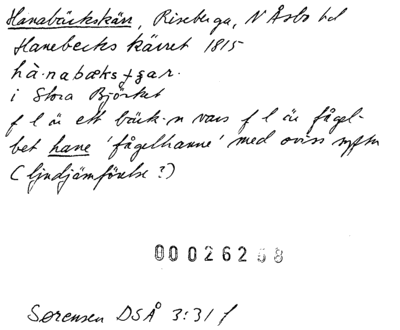 Hanabäckskärr, Riseberga, N Åsbo hd
Hanebecks kärret 1815
i Stora Björket
f l är ett bäck-n vars f l är fågel-
bet hane 'fågelhanne' med oviss syftn
(ljudjämförelse?)
000262
Sørensen DSÅ 3:31 f